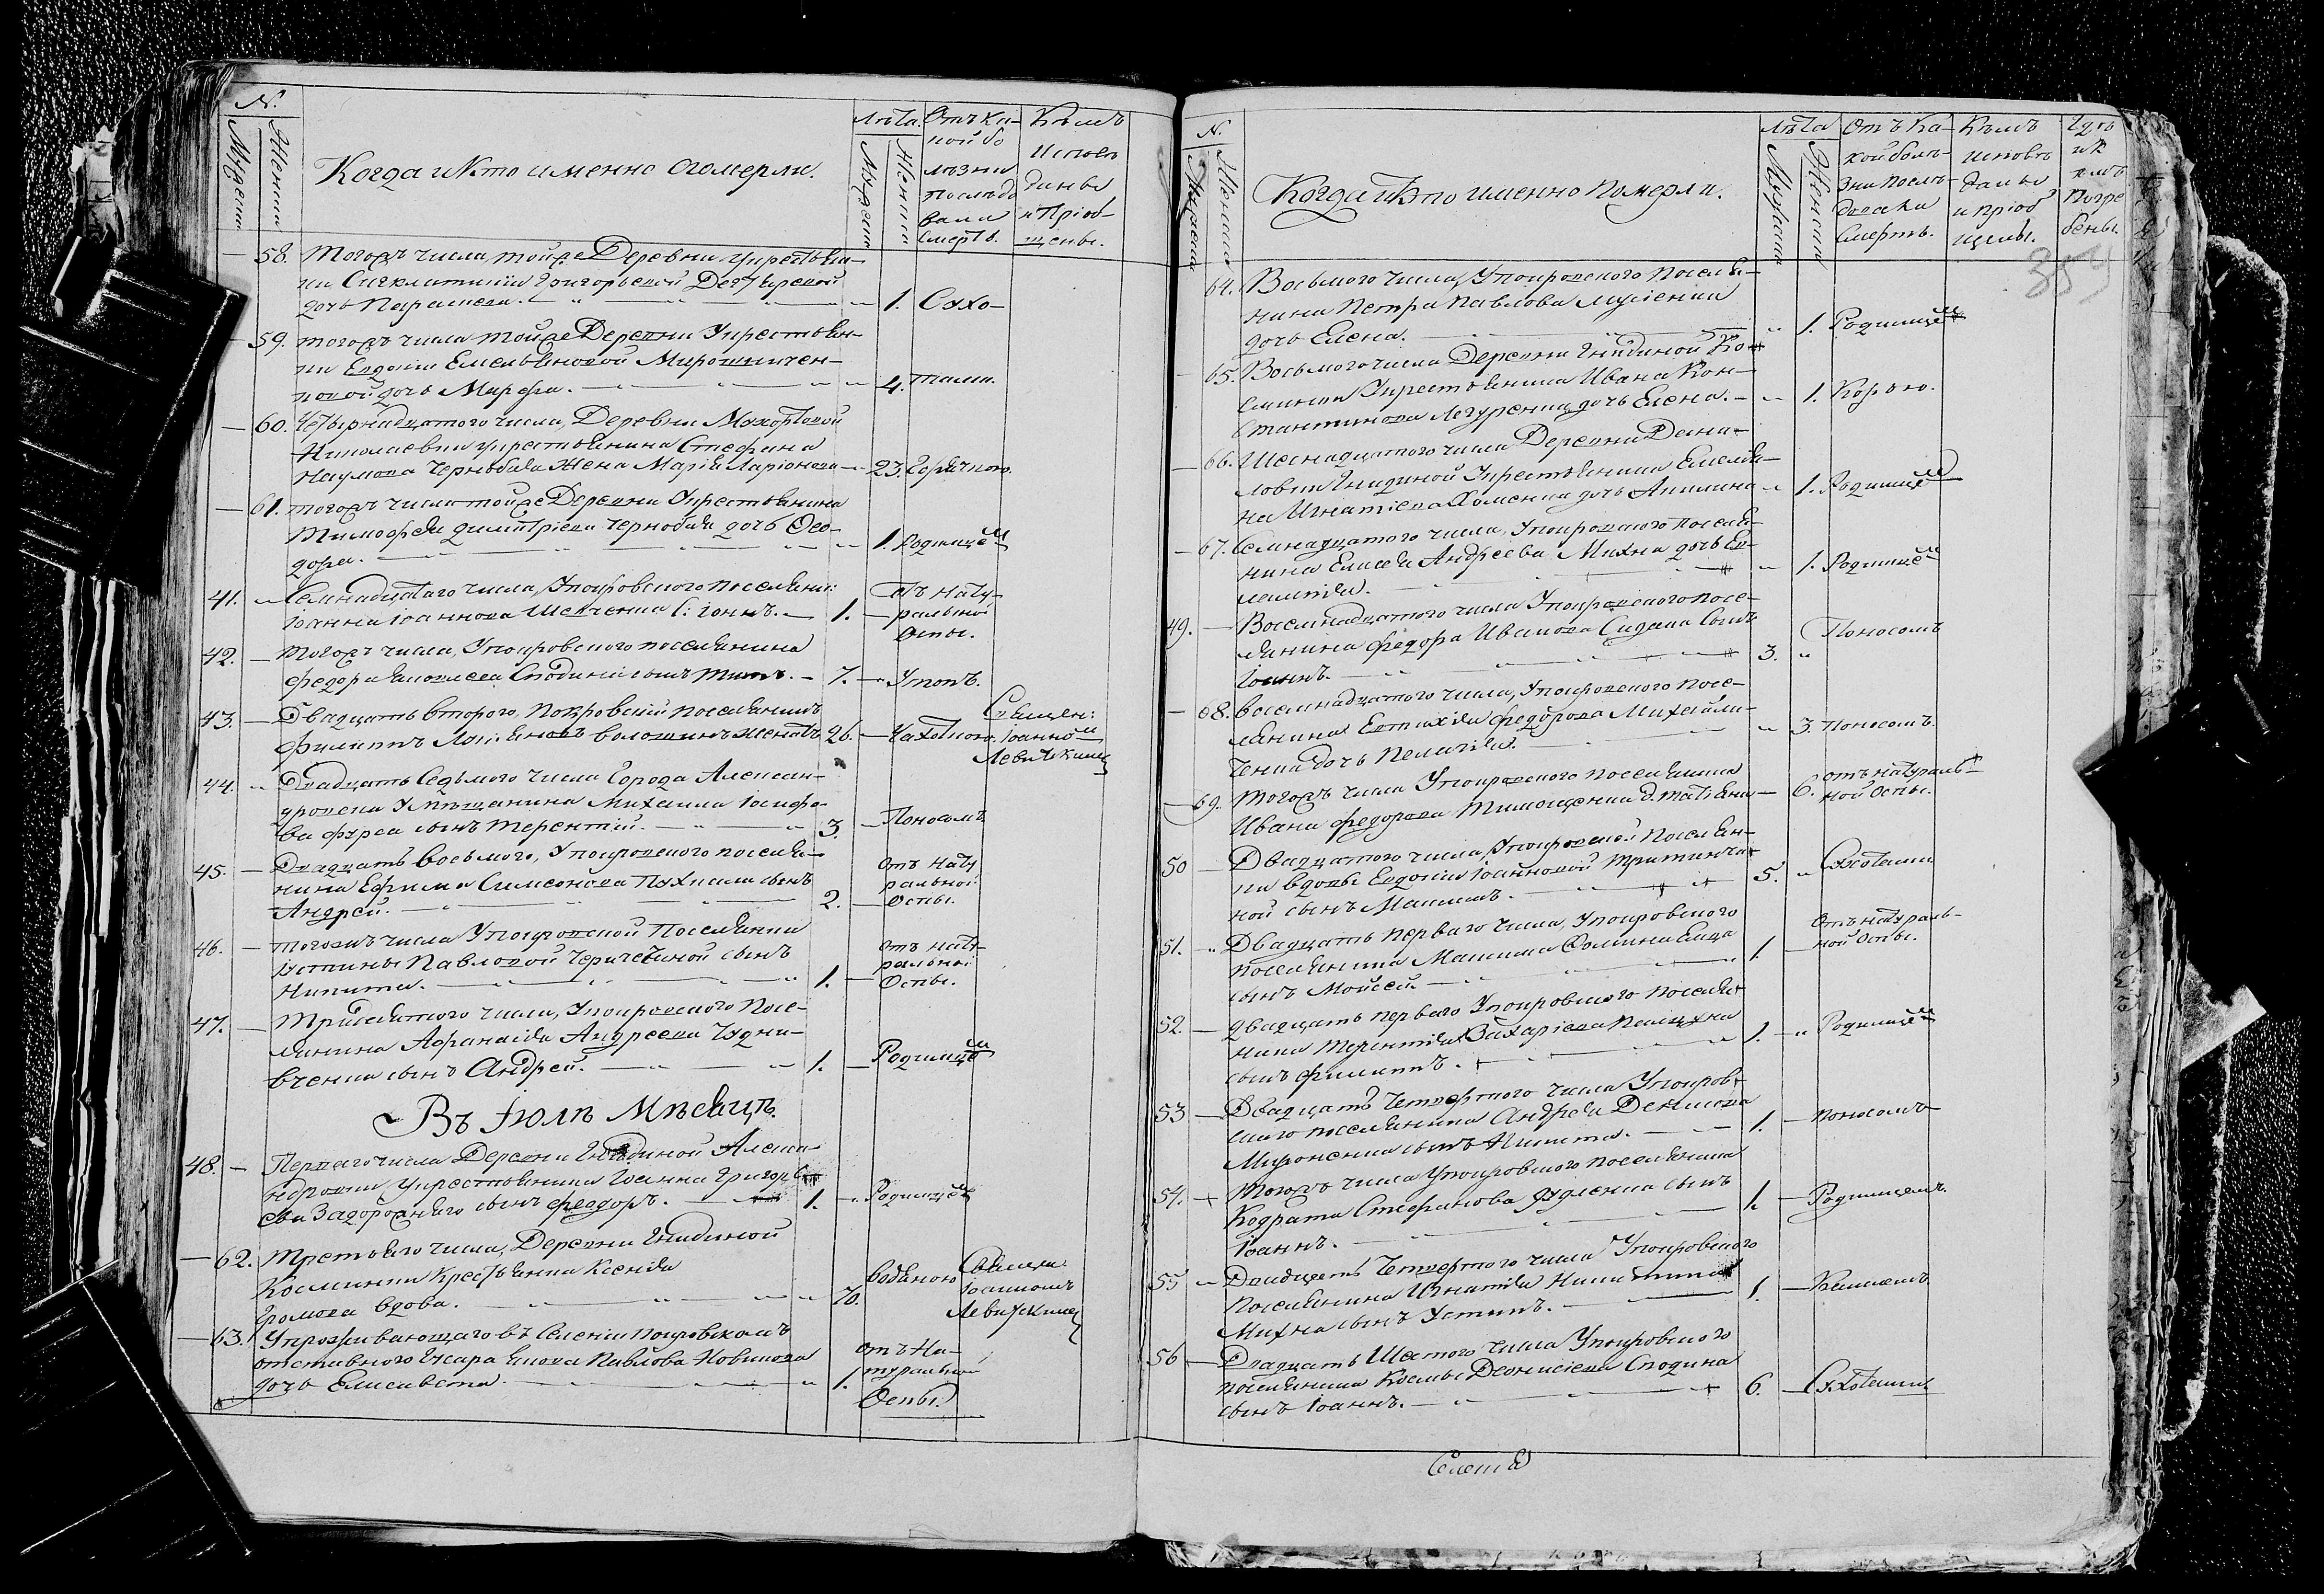 N.
Мужеска
Женска
Когда и Кто именно померли.
Лѣта.
Мужеска
Женска
Отъ Ка-
кой бо
лѣзни
послѣдо
вала
Смерть.
Кѣмъ
Исповѣ
даны
и Пріоб-
щены.
58. Тогожъ числа тойже Деревни у крестьян-
ки Григорьевой
дочь Параскева. 1. Сухо-
59. Тогожъ числа тойже Деревни У крестьян-
ки Евдокіи Емельяновой Мирошничен-
ковой дочь Марфа. 4. тами.
60. Четырнадцатого числа, Деревни
Николаевки у крестьянина Стефана
Наумова Чернобая Жена Марія Ларіонова 23. Горячкою.
61. тогожъ числа тойже Деревни У крестьянина
Тимофея Димитріева Чернобая дочь Ѳео-
дора. 1. Родимцемъ
41. Семнадцатаго числа, У покровского поселянина
Іоанна Іоаннова Шевченка с: Іоаннъ. 1. отъ Нату-
ральной
Оспы.
42. Тогожъ числа, У покровского поселянина
Федора Сподина сынъ Титъ. 7. Утопъ.
43. Двадцать второго, Покровскій поселянинъ
Филиппъ Волошинъ женатъ 26. Чахоткою. Священ:
Іоанномъ
Левицкимъ
44. Двадцать Седьмого числа Города Алексан-
дровска У Мѣщанина Михаила Іосифо-
ва Фурса сынъ Терентій. 3. Поносомъ
45. Двадцать восьмого, У покровского поселя-
нина Ефима Симеонова сынъ
Андрей. 2. Отъ Нату
ральной
Оспы.
46. тогожъ числа У покровской Поселянки
Устины Павловой сынъ
Никита. 1. отъ нату-
ральной
Оспы.
47. Тридцятого числа, У покровского Посе-
лянина Афанасія Андреева Чудни-
вченка сынъ Андрей. 1. Родимцемъ
Въ Іюлѣ Мѣсяцѣ.
48. Перваго числа Деревни Гнѣдиной Алексан-
дровки у крестьянина Іоанна Григорь-
ева Задорожнего сынъ Феодоръ. 1. Родимцемъ
62. Третьяго числа, Деревни Гнидиной
Косминки Крестьянка Ксенія
Громова вдова. 70. водяною Священ:
Іоанномъ
Левицкимъ
63. У проживающаго въ Селеніи покровскомъ
отставного Павлова Новикова
дочь Елисавета. 1. отъ На-
туральной
Оспы.
N.
Мужеска
Женска
Когда и Кто именно померли.
Лѣта
Мужеска
Женска
Отъ Ка-
кой болѣ-
зни послѣ-
довала
Смерть.
Кѣмъ
исповѣ
даны
и пріоб
щены.
Гдѣ
и к
кмъ
Погре
бены.
353
64. Восьмого числа, У покровского поселя-
нина Петра Павлова
дочь Елена. 1. Родимцемъ
65. Восьмого числа Деревни Гнидиной Ко-
сминки У крестьянина Ивана Кон-
стантинова дочь Елена. 1. Корью.
66. Шеснадцатого числа Деревни Дани-
ловки Гнидиной У крестьянина Емелья-
на Игнатіева Хоменка дочь Акилина 1. Родимцемъ
67. Семнадцатого числа, У покровского поселя-
нина Елисея Андреева Михна дочь Ев-
лампія. 1. Родимцемъ
49. Восемнадцатого числа У покровского посе-
лянина Федора Иванова сынъ
Іоаннъ. 3. Поносомъ
68. Восемнадцатого числа, У покровского посе-
лянина Евтихія Федорова Михайли-
ченка дочь Пелагія. 3. Поносомъ.
69. Тогожъ числа У покровского поселянина
Ивана Федорова Тимощенка д. Татіана 6. отъ натураль-
ной Оспы.
50 Двадцатого числа, У покровской поселян-
ки вдовы Евдокіи Іоанновой
ной сынъ Максимъ. 5. Сухотами
51. Двадцать перваго числа, У покровского
поселянина Максима
сынъ Мойсей. 1. Отъ натураль-
ной Оспы.
52. двадцать перваго У покровского поселя-
нина Терентія Захаріева
сынъ Филиппъ. 1. Родимцемъ
53 Двадцать Четвертого числа У покров-
ского поселянина Андрея Денисова
Мироненка сынъ Никита. 1. поносомъ
54. Тогожъ числа У покровского поселянина
Кодрата Стефанова сынъ
Іоаннъ. 1. Родимцемъ.
55 Двадцать Четвертого числа У покровского
поселянина Игнатія Никитина
Михна сынъ Устинъ. 1. Кашлемъ
56 Двадцать Шестого числа У покровского
поселянина Космы Деонисіева Сподина
сынъ Іоаннъ. 6. Сухотами.